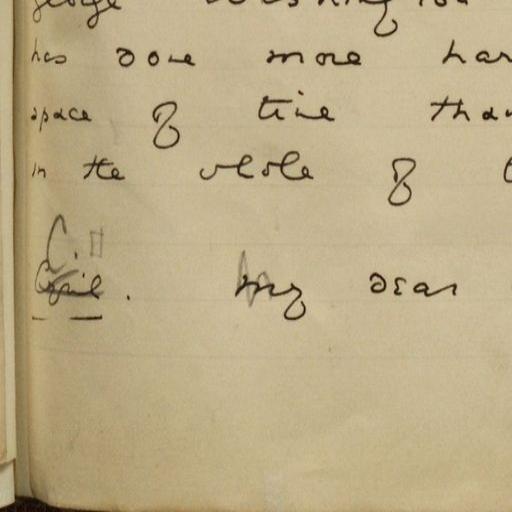 george Washington
has done more har
space of time than
in the whole of
C.
Cyril. My dear